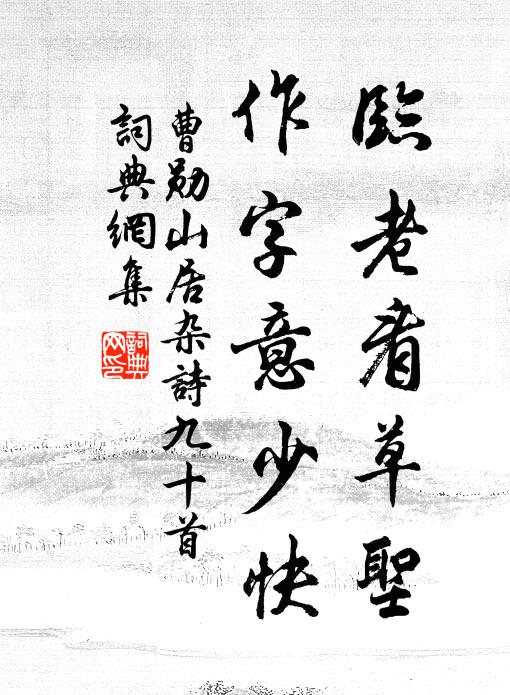 臨老看草聖
作字意少快
曹勛山居杂詩九十首
詞典網集
詞典
网印